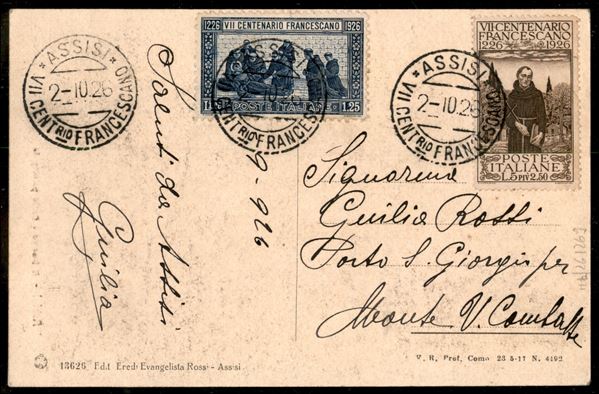 ASSISI
2-10.26
VII CENT.RIO FRANCESCANO
1226 VII CENTENARIO FRANCESCANO 1926
1.25 POSTE ITALIANE 1.25
VII CENTENARIO
FRANCESCANO
1226 1926
POSTE
ITALIANE
L.5 PIÙ 2.50
ASSISI
2-10.26
VII CENT.RIO FRANCESCANO
Saluti da Assisi
Giulia
9-926
Signorina
Giulia Rossi
Porto S. Giorgio per
Monte V. Combatte
13626 Edit. Eredi Evangelista Rossi - Assisi
V. R. Prof. Como 23-5-17 N. 4492